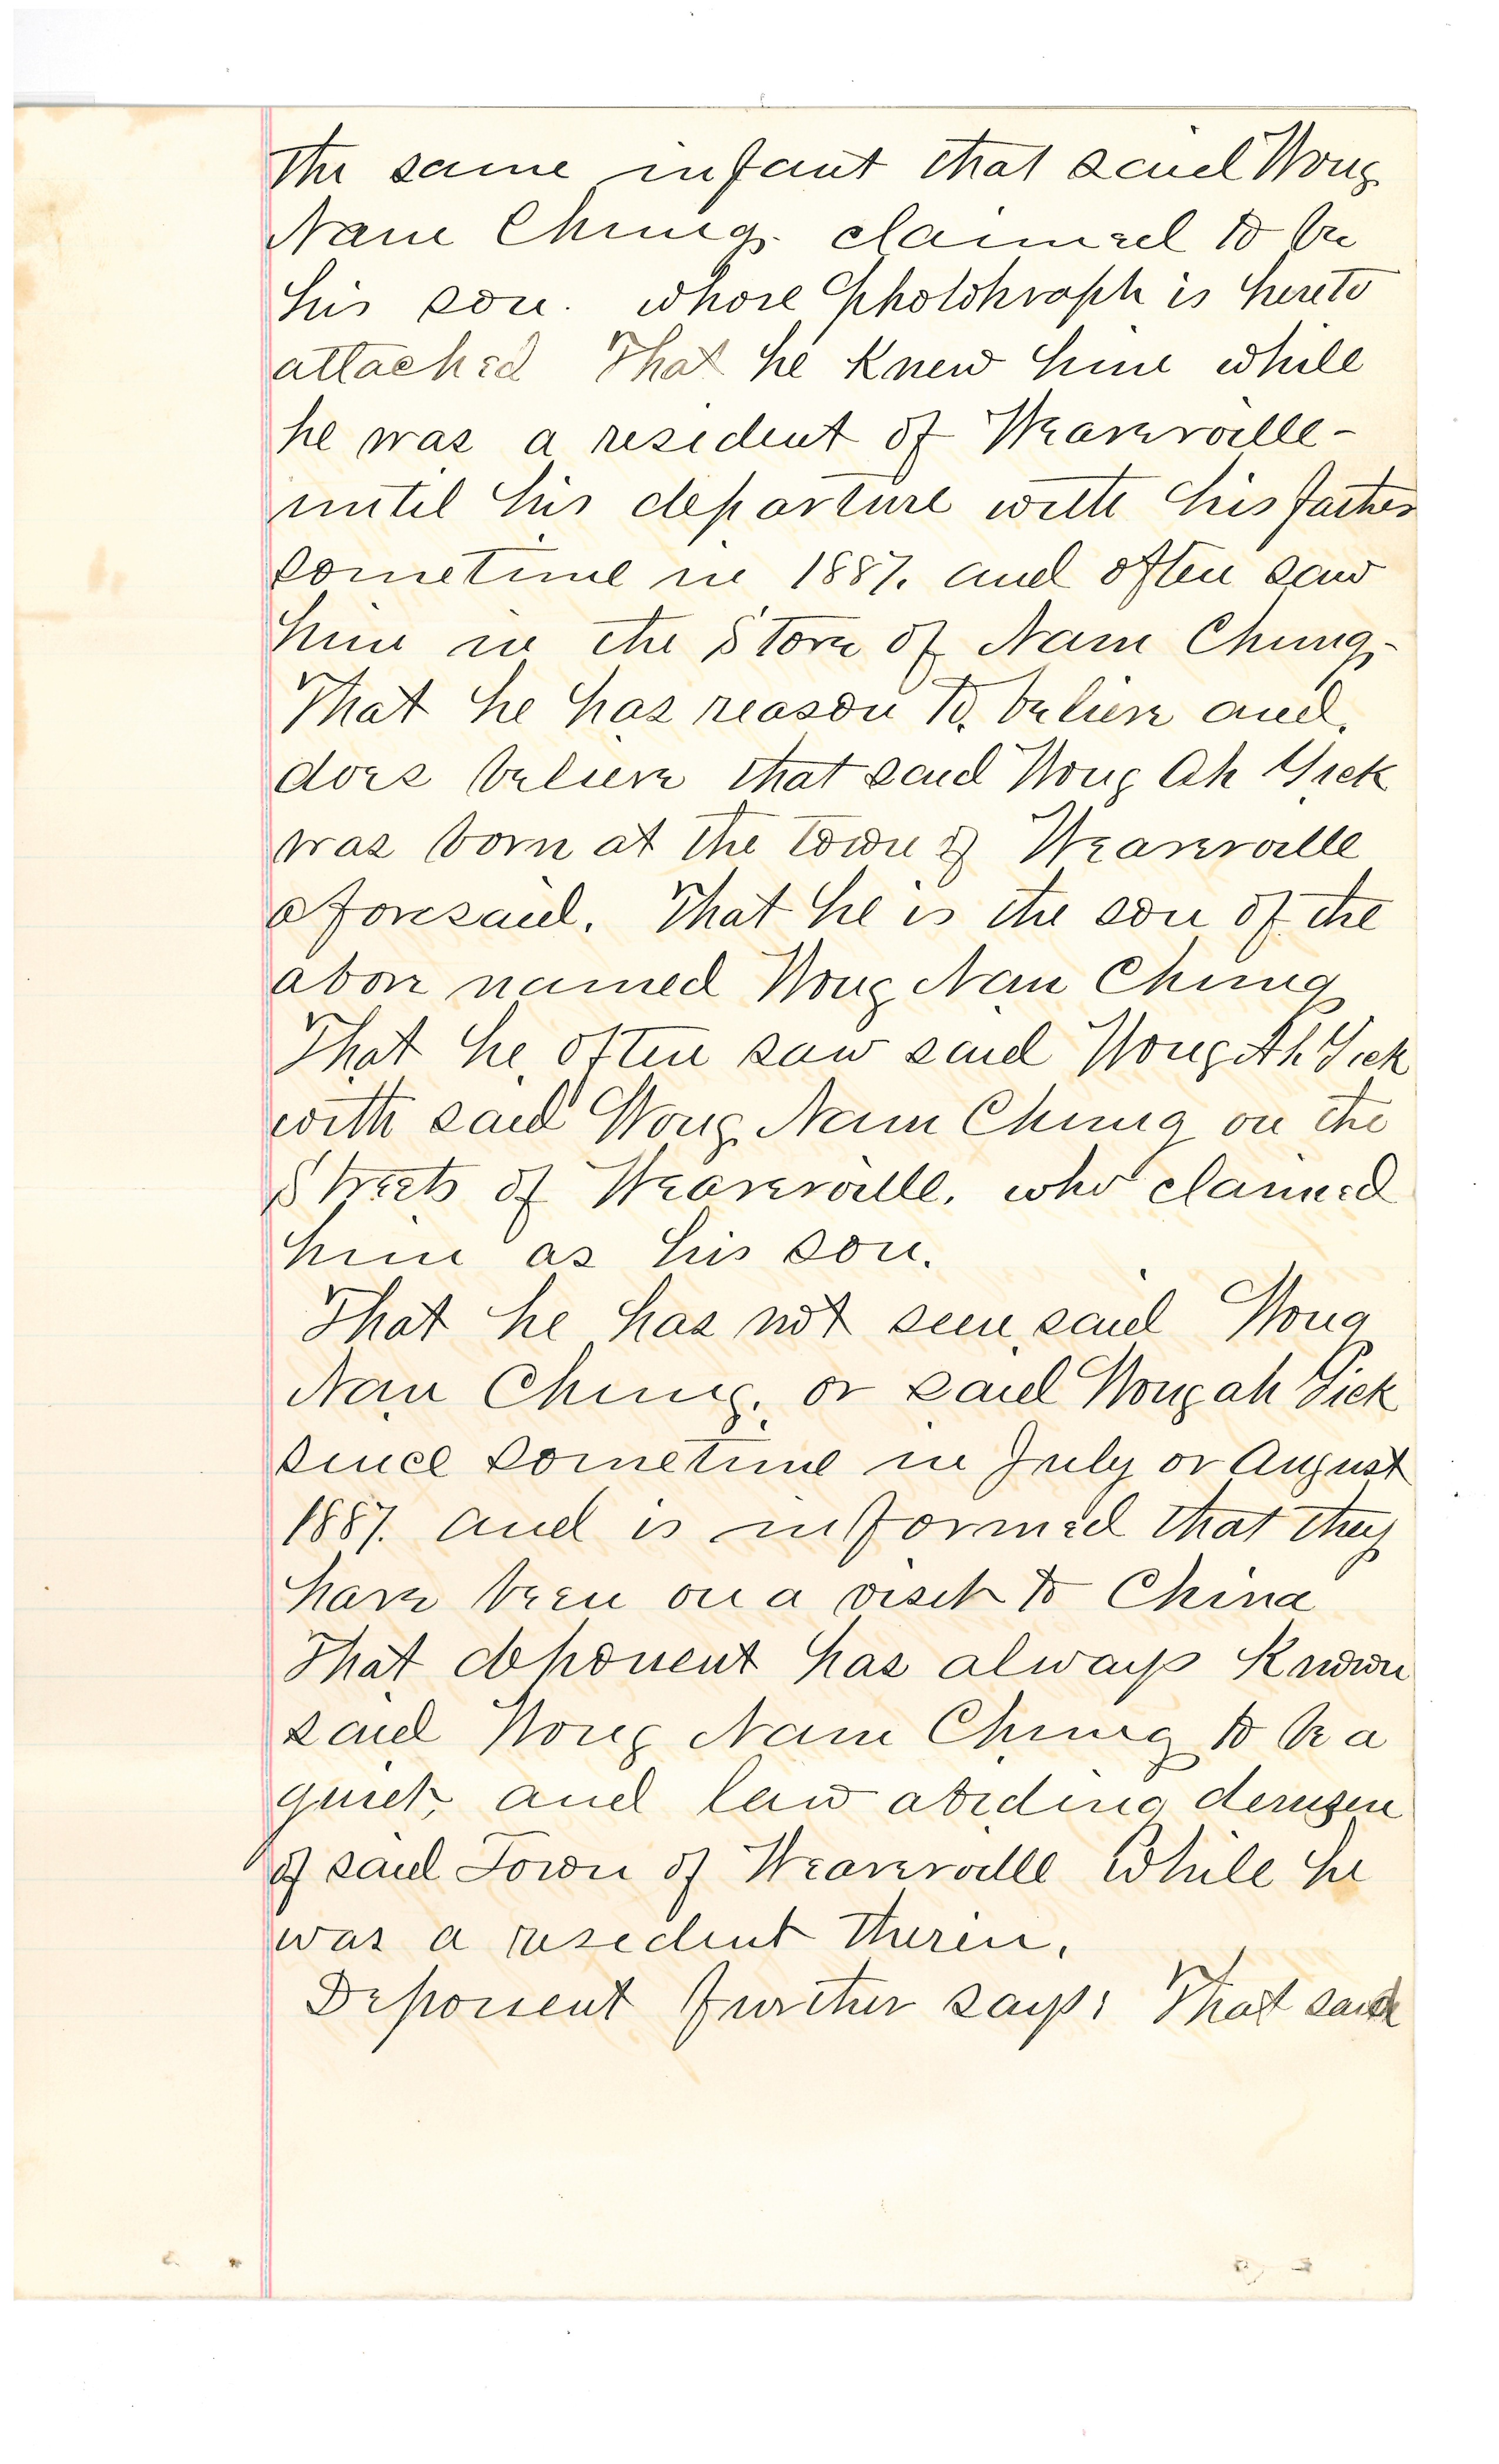 the same infant that said Wong
Nam Chung. claimed to be
his son. whose photohraph is hereto
attached That he knew him while
he was a resident of Weaverville-
until his departure with his father
sometime in 1887. and often saw
him in the Store of Nam Chung,-
That he has reason to believe and,
does believe that said Wong Ah Yick
was born at the town of Weaverville
aforesaid. That he is the son of the
above named Wong Nam Chung
That he often saw said Wong Ah Yick
with said Wong Nam Chung on the
Streets of Weaverville, who claimed
him as his son.
That he has not seen said Wong
Nam Chung, or said Wong ah Yick
since sometime in July or August
1887. and is informed that they
have been on a visit to China
That deponent has always known
said Wong Nam Chung to be a
quiet, and law abiding denizen
of said Town of Weaverville while he
was a resident therein,
Deponent further says: That said